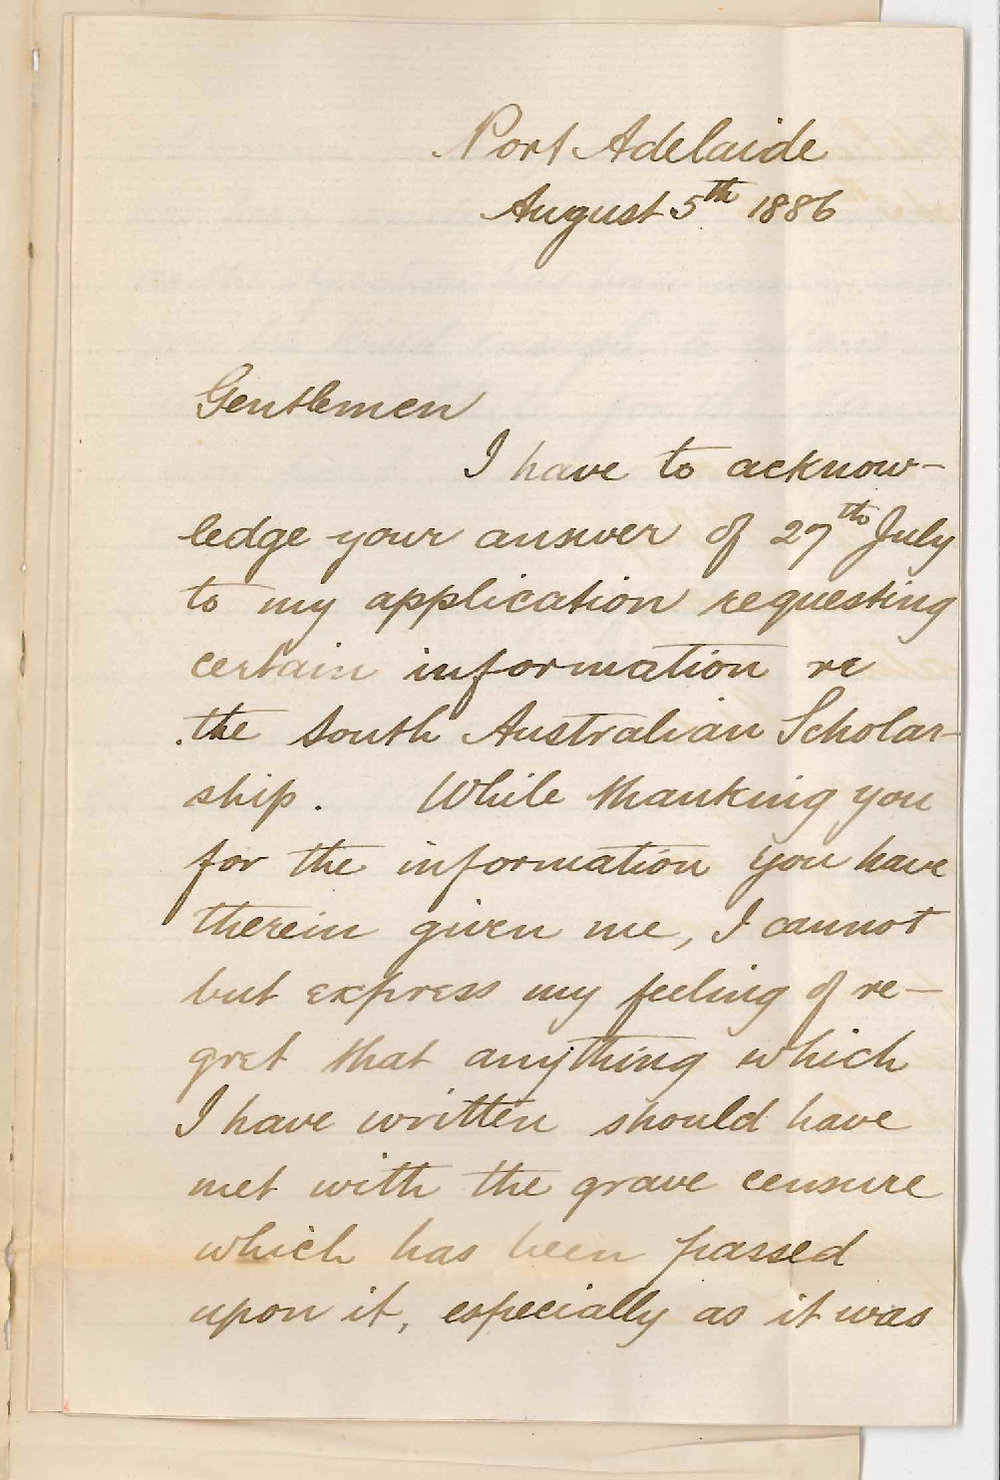 Port Adelaide
August 5th 1886
Gentlemen
I have to acknow-
ledge your answer of 27th July
to my application requesting
certain information re
the South Australian Scholar-
ship. While thanking you
for the information you have
therein given me, I cannot
but express my feeling of re-
gret that anything which
I have written should have
met with the grave censure
which has been passed
upon it, especially as it was